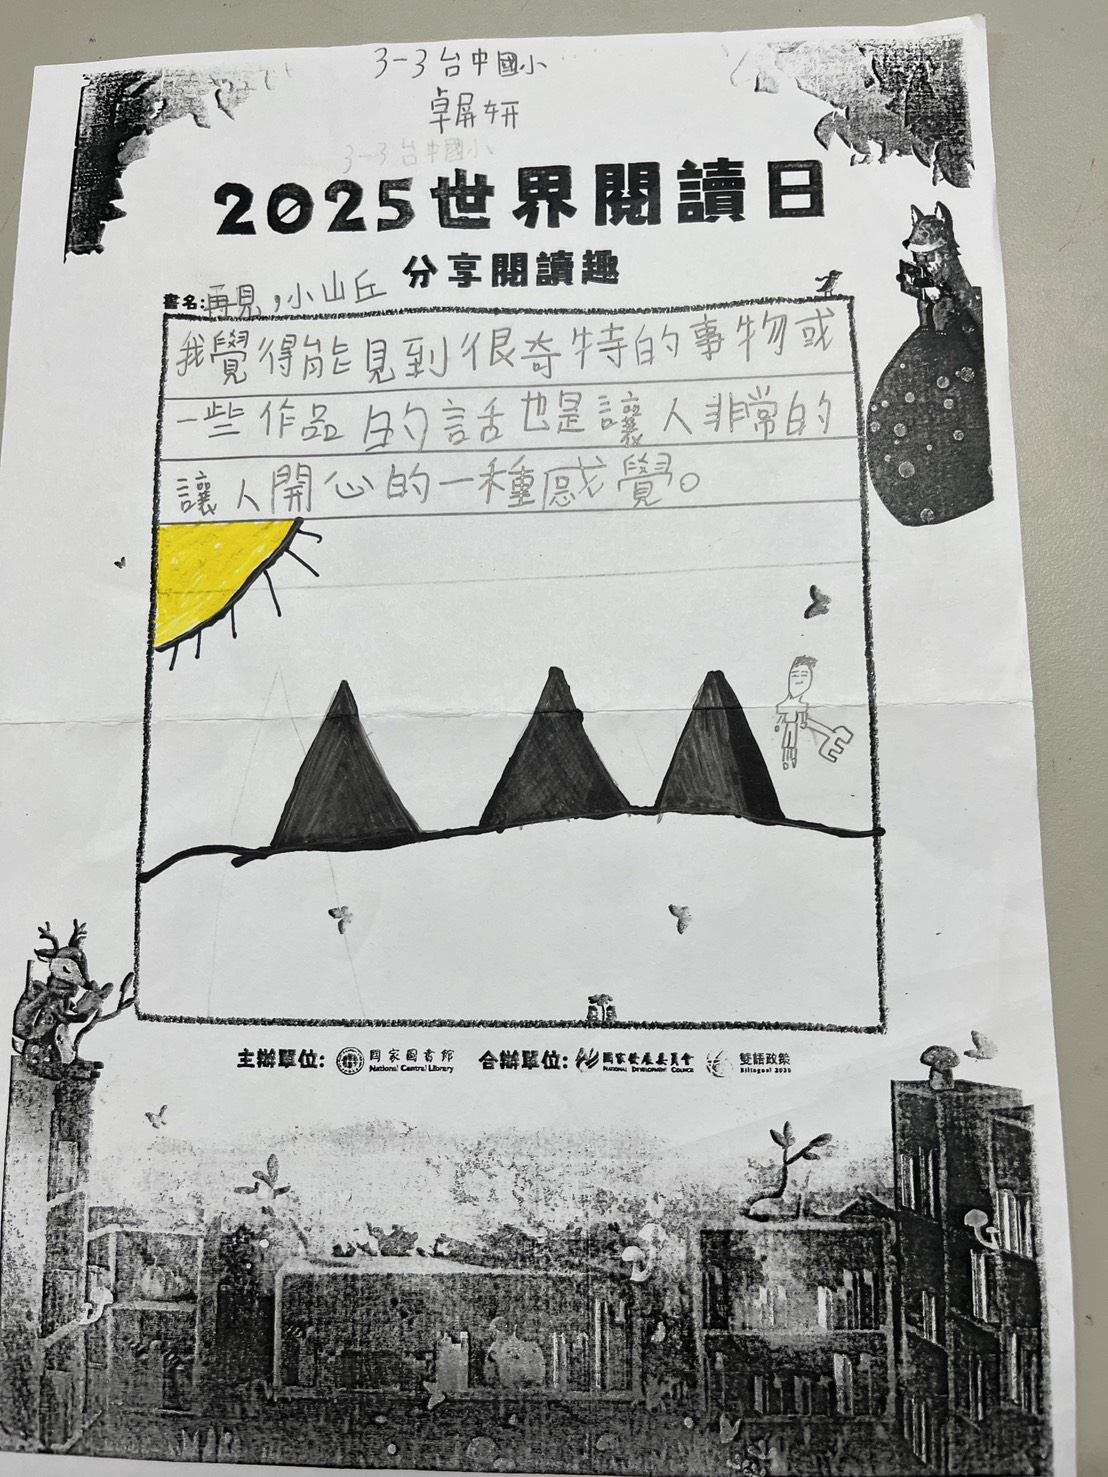 3-3台中國小
卓屏妍
3-3台中國小
2025世界閱讀日
分享閱讀趣
書名:再見,小山丘
我覺得能見到很奇特的事物或
一些作品的話也是讓人非常的
讓人開心的一種感覺。
主辦單位: 國家圖書館 National Central Library 合辦單位: 國家發展委員會 National Development Council 雙語政策 Bilingual 2030